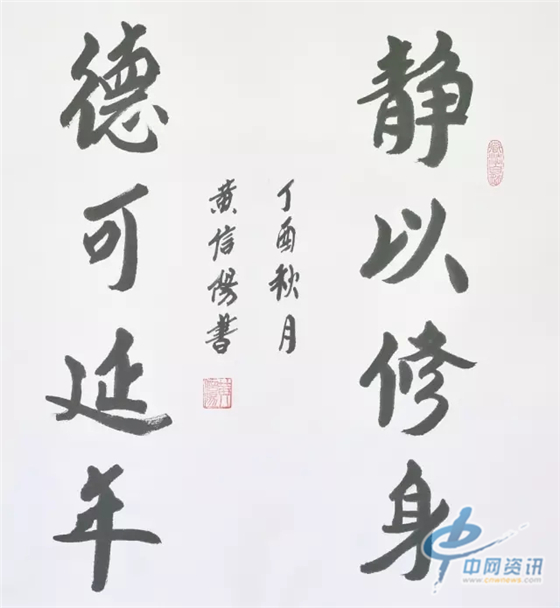 静以修身
丁酉秋月
黄信陽書
德可延年
中网资讯
www.cnwnews.com